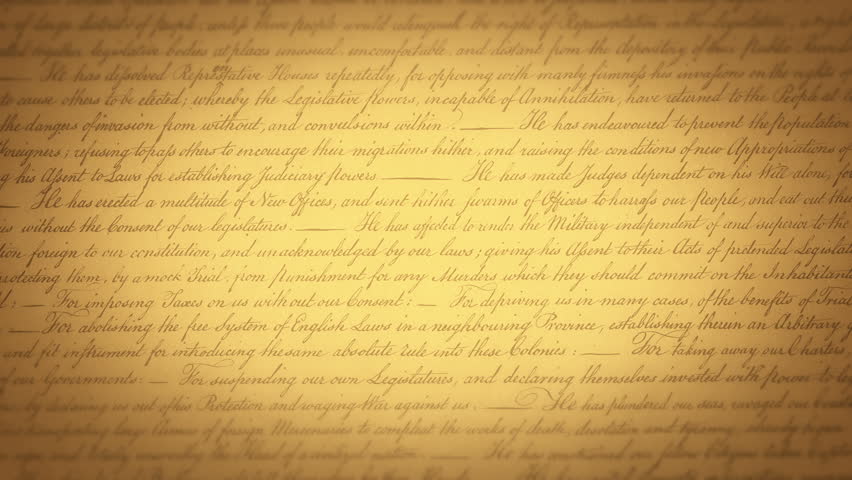 of large districts of people, unless those people would relinquish the right of Representation in the Legislature, a right
called together legislative bodies at places unusual, uncomfortable, and distant from the depository of their Public Records
— He has dissolved Representative Houses repeatedly, for opposing with manly firmness his invasions on the rights of
to cause others to be elected; whereby the Legislative powers, incapable of Annihilation, have returned to the People at
the dangers of invasion from without, and convulsions within. — He has endeavoured to prevent the Population
Foreigners; refusing to pass others to encourage their migrations hither, and raising the conditions of new Appropriations of
g his Assent to Laws for establishing Judiciary powers. — He has made Judges dependent on his Will alone, fo
— He has erected a multitude of New Offices, and sent hither swarms of Officers to harrass our People, and eat out thei
ies without the Consent of our legislatures. — He has affected to render the Military independent of and superior to the
tion foreign to our constitution, and unacknowledged by our laws; giving his Assent to their Acts of pretended Legislat
protecting them, by a mock Trial, from punishment for any Murders which they should commit on the Inhabitant
d: — For imposing Taxes on us without our Consent: — For depriving us in many cases, of the benefits of Trial
— For abolishing the free System of English Laws in a neighbouring Province, establishing therein an Arbitrary g
and fit instrument for introducing the same absolute rule into these Colonies: — For taking away our Charters,
of our Governments: — For suspending our own Legislatures, and declaring themselves invested with power to leg
by declaring us out of his Protection and waging War against us. — He has plundered our seas, ravaged our
transporting large Armies of foreign Mercenaries to compleat the works of death, desolation and tyranny, already begun
the Head of a civilized nation. — He has constrained our fellow Citizens taken